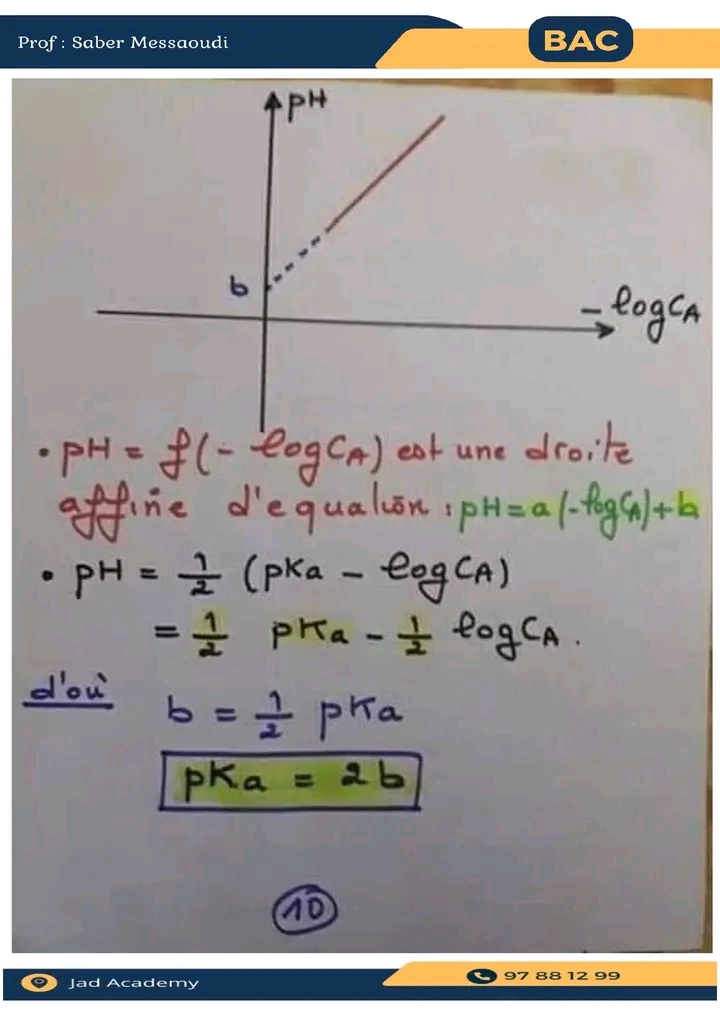 Prof : Saber Messaoudi
BAC
pH
b
- log CA
• pH = f(- log CA) est une droite
affine d'equation : pH = a(-log CA) + b
• pH = 1/2 (pKa - log CA)
= 1/2 pKa - 1/2 log CA.
d'où b = 1/2 pKa
pKa = 2b
10
Jad Academy
97 88 12 99